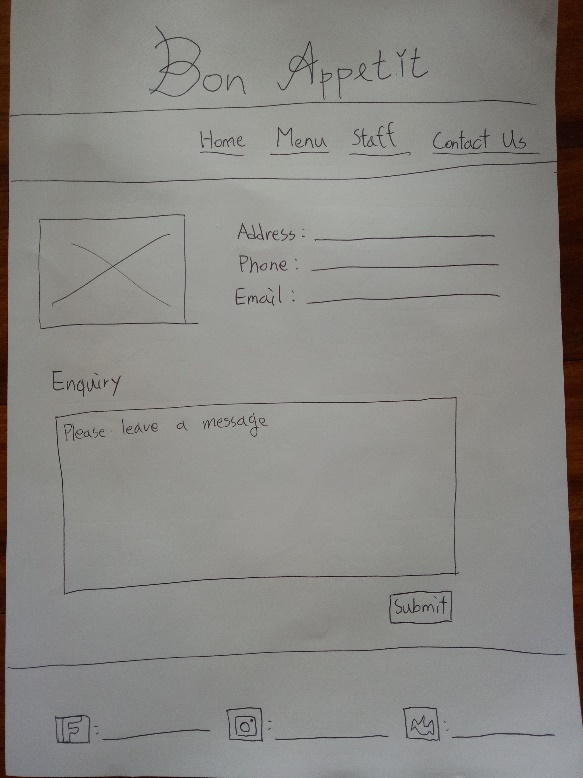 Bon Appetit
Home Menu Staff Contact Us
Address:
Phone:
Email:
Enquiry
Please leave a message
Submit
F: : :